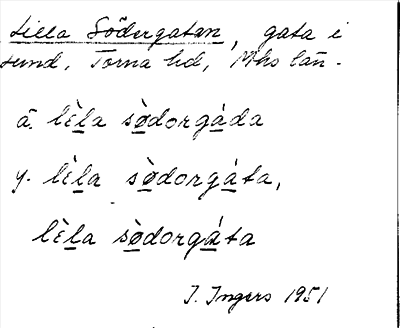 Lilla Södergatan, gata i
Lund, Torna hd, Mhs län.
ä. lὲl̲a sø̲̀dorgá̲da
y. lὲl̲a sø̲̀dorgá̲ta,
lὲl̲a sø̲̀dorgá̲ta
I. Ingers 1951